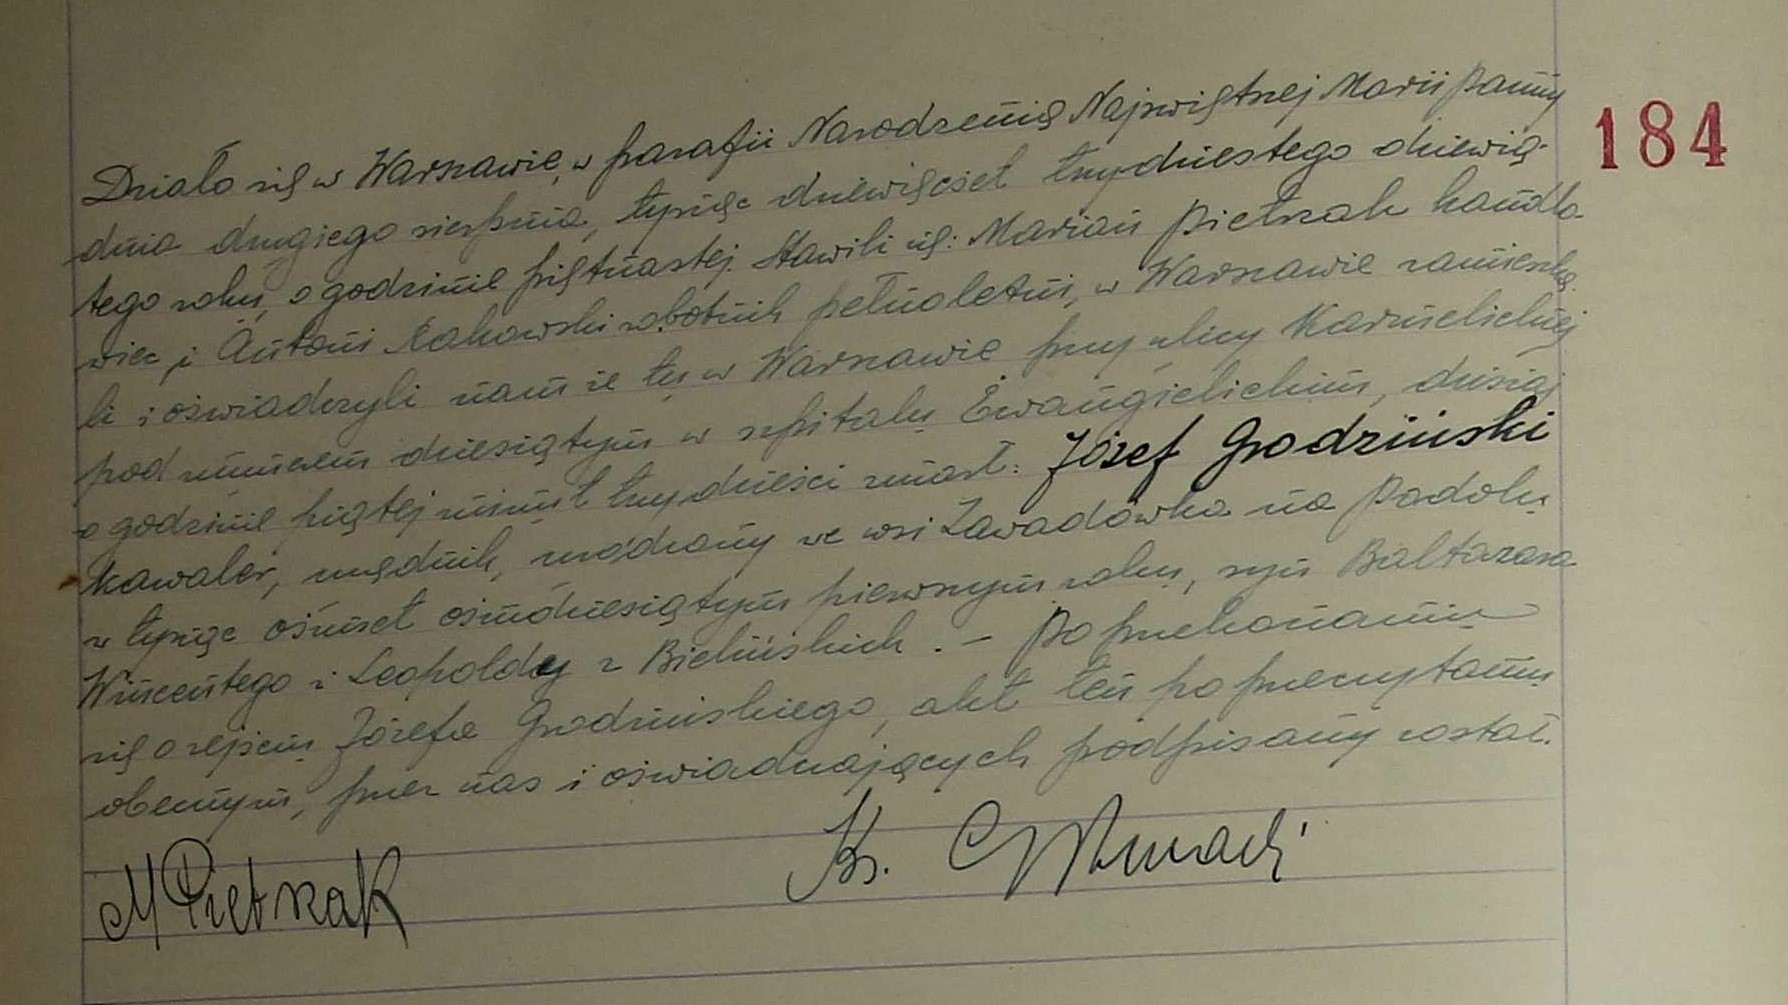 184
Działo się w Warszawie, w parafii Narodzenia Najświętszej Marii Panny
dnia drugiego sierpnia, tysiąc dziewięćset trzydziestego dziewią-
tego roku, o godzinie piętnastej. Stawili się: Marian Pietrzak handlo-
wiec i Antoni Rakowski robotnik pełnoletni, w Warszawie zamieszka-
li i oświadczyli nam że tu w Warszawie przy ulicy Karmelickiej
pod numerem dziesiątym w szpitalu Ewangielickim, dzisiaj
o godzinie piątej minut trzydzieści zmarł: Józef Grodziński
kawaler, urzędnik, urodzony we wsi Zawadówka na Podolu
w tysiąc ośmset ośmdziesiątym pierwszym roku, syn Baltazara
Wincentego i Leopoldy z Bielińskich. – Po przekonaniu
się o zejściu Józefa Grodzińskiego, akt ten po przeczytaniu
obecnym, przez nas i oświadczających podpisany został.
M Pietrzak Ks.